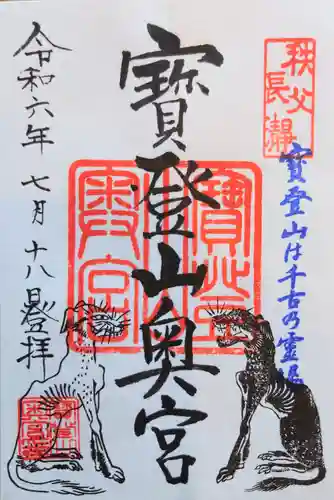 秩父
長瀞
寳登山は千古乃霊場
寳登山奥宮
令和六年七月十八日登拝